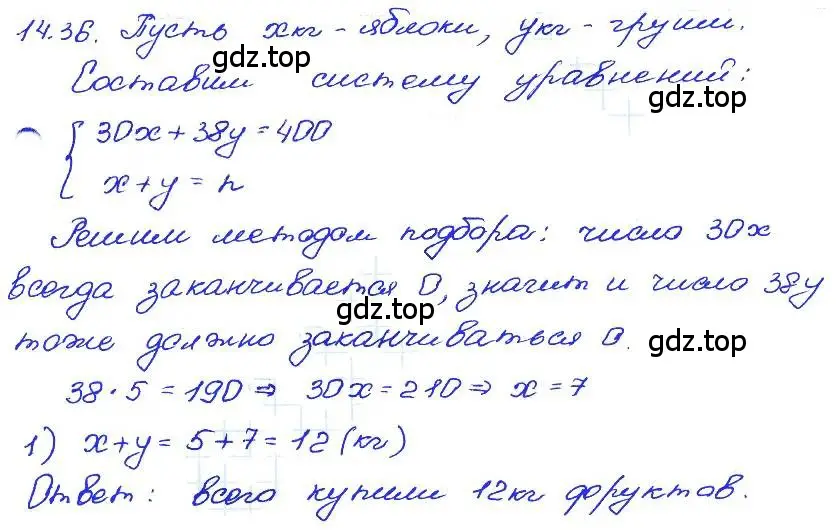 14.36. Пусть x кг - яблоки, y кг - груши.
gdz.top
Составим систему уравнений:
gdz.top
30x + 38y = 400
x + y = n
Решим методом подбора: число 30x
всегда заканчивается 0, значит и число 38y
gdz.top
тоже должно заканчиваться 0.
gdz.top
38 · 5 = 190 ⇒ 30x = 210 ⇒ x = 7
1) x + y = 5 + 7 = 12 (кг)
Ответ: всего купили 12кг фруктав.